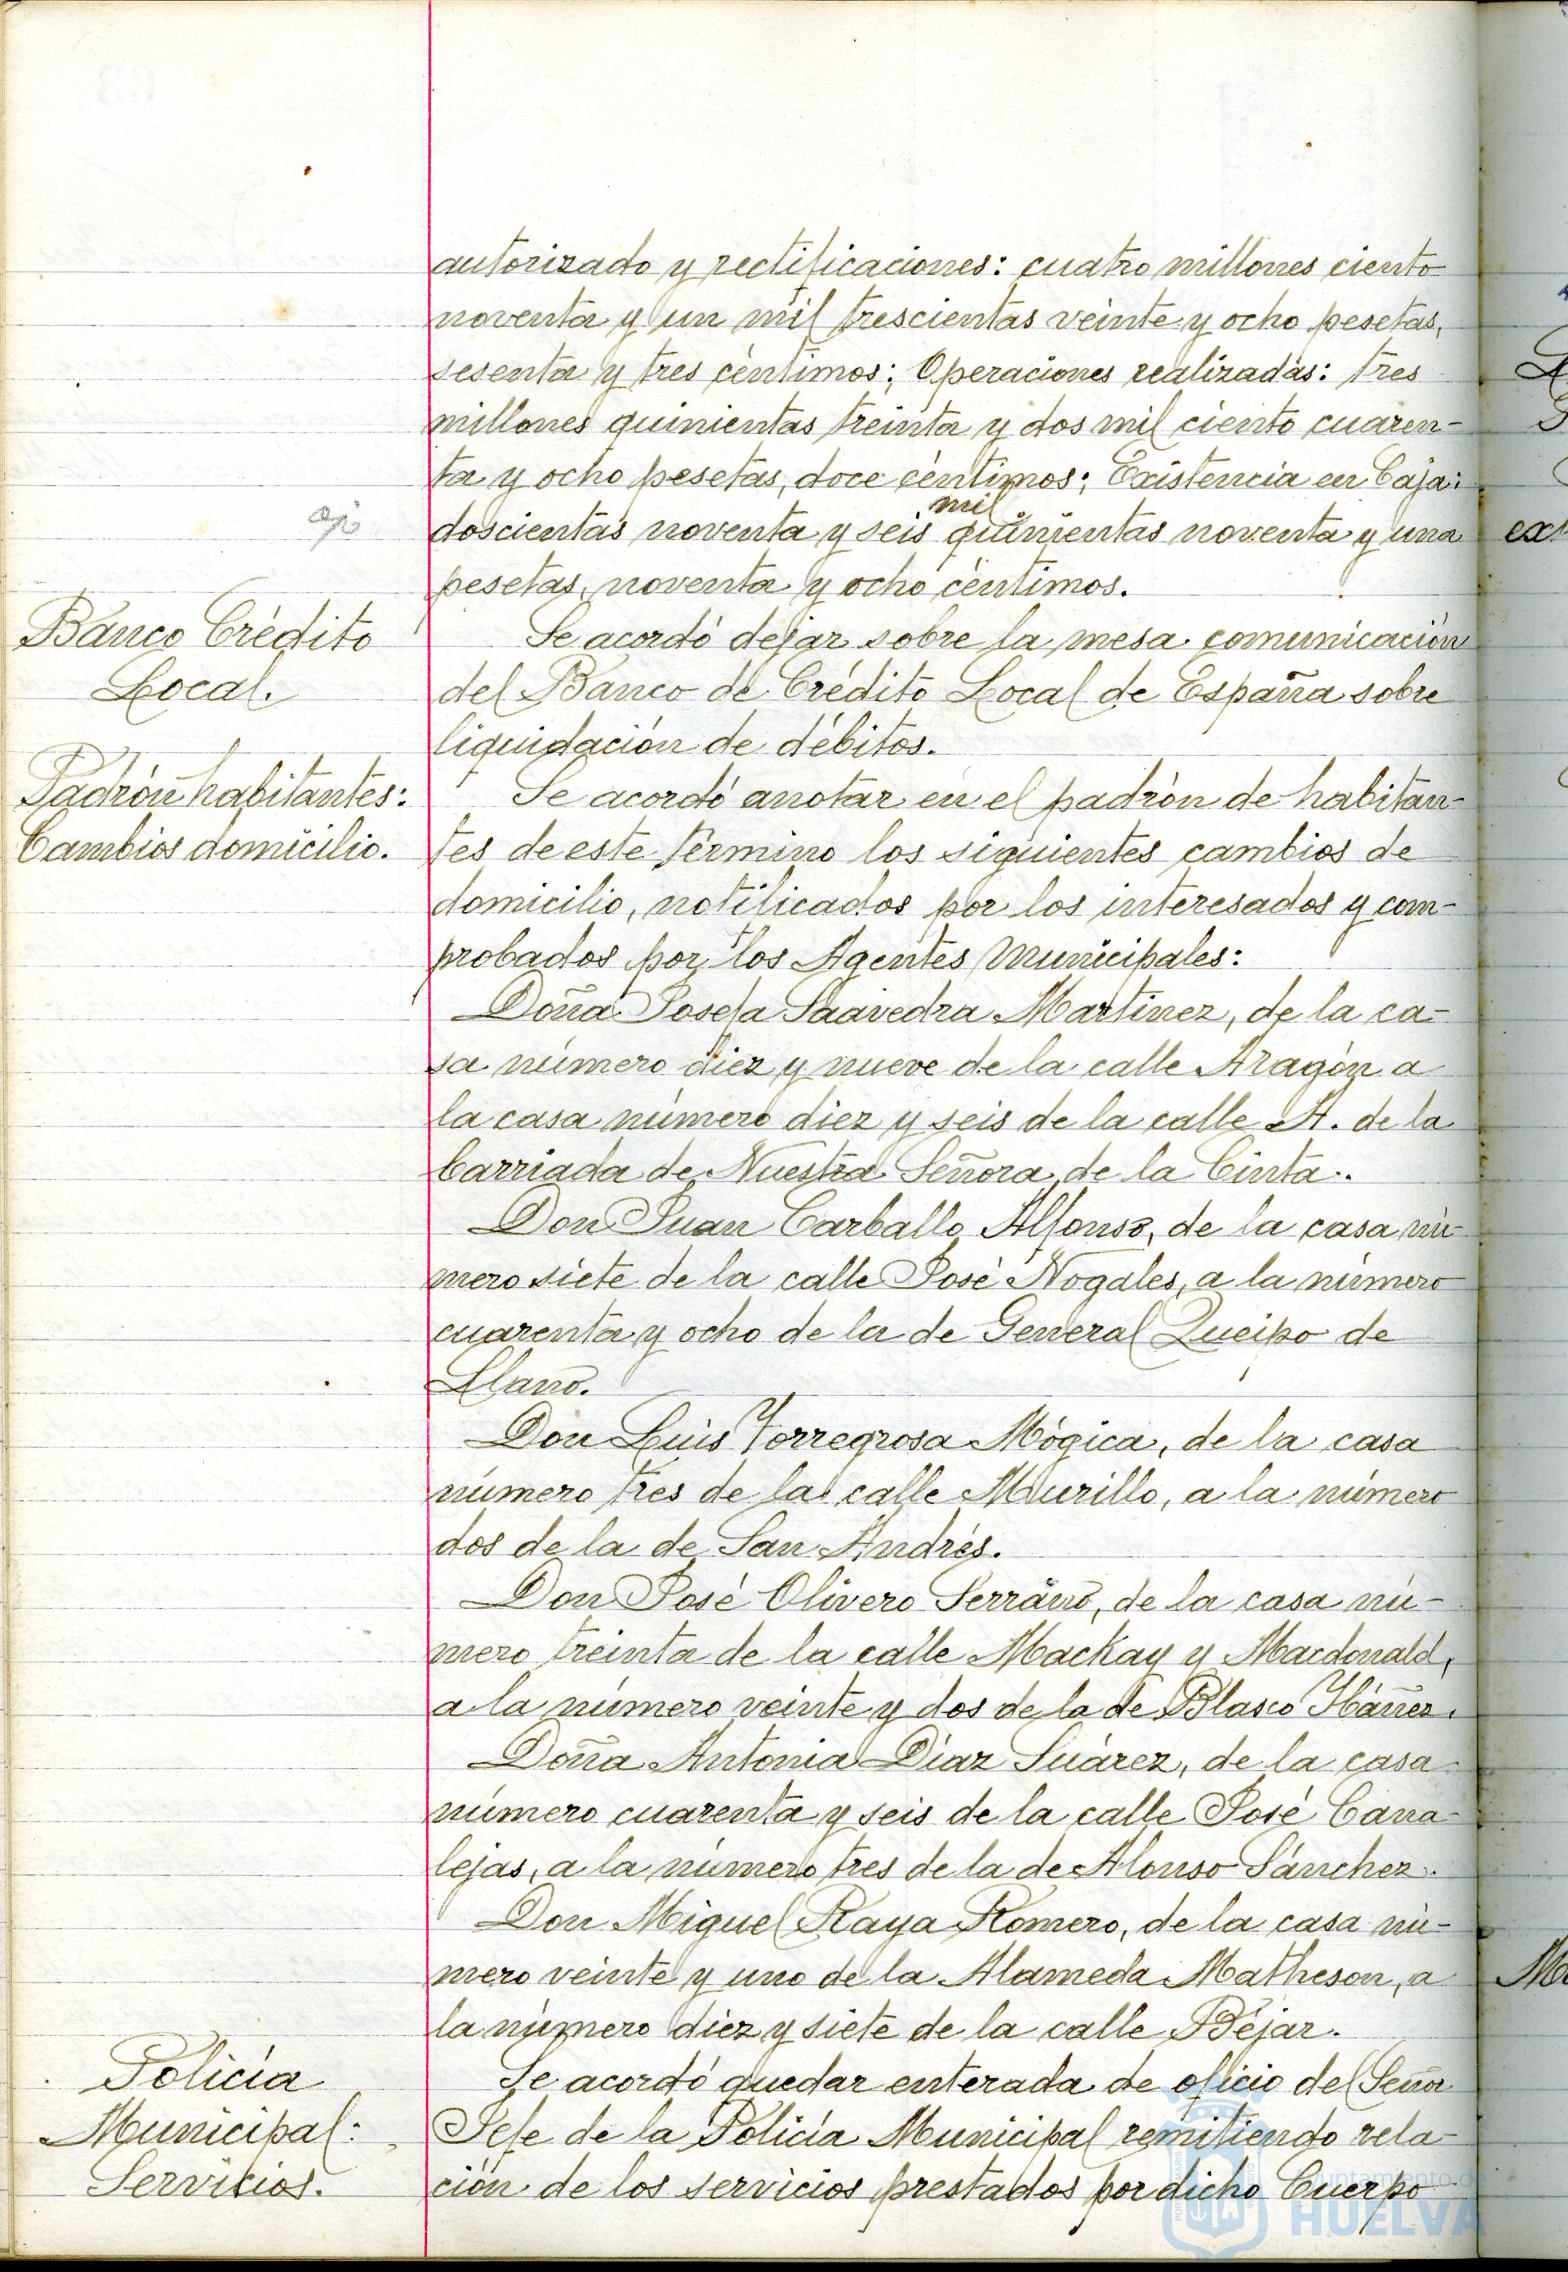 autorizado y rectificaciones: cuatro millones ciento
noventa y un mil trescientas veinte y ocho pesetas,
sesenta y tres céntimos; Operaciones realizadas: tres
millones quinientas treinta y dos mil ciento cuaren-
ta y ocho pesetas, doce céntimos; Existencia en Caja:
mil
doscientas noventa y seis quinientas noventa y una
pesetas, noventa y ocho céntimos.
Banco Crédito
Local.
Se acordó dejar sobre la mesa comunicación
del Banco de Crédito Local de España sobre
liquidación de débitos.
Padrón habitantes:
Cambios domicilio.
Se acordó anotar en el padrón de habitan-
tes de este término los siguientes cambios de
domicilio, notificados por los interesados y com-
probados por los Agentes Municipales:
Doña Josefa Saavedra Martinez, de la ca-
sa número diez y nueve de la calle Aragón a
la casa número diez y seis de la calle A. de la
barriada de Nuestra Señora de la Cinta.
Don Juan Carballo Alfonso, de la casa nú-
mero siete de la calle José Nogales, a la número
cuarenta y ocho de la de General Queipo de
Llano.
Don Luis Torregrosa Mógica, de la casa
número tres de la calle Murillo, a la número
dos de la de San Andrés.
Don José Olivero Serrano, de la casa nú-
mero treinta de la calle Mackay y Macdonald,
a la número veinte y dos de la de Blasco Ibáñez.
Doña Antonia Díaz Suárez, de la casa
número cuarenta y seis de la calle José Cana-
lejas, a la número tres de la de Alonso Sánchez.
Don Miguel Raya Romero, de la casa nú-
mero veinte y uno de la Alameda Matheson, a
la número diez y siete de la calle Béjar.
Policía
Municipal:
Servicios.
Se acordó quedar enterada de oficio del Señor
Jefe de la Policía Municipal remitiendo rela-
ción de los servicios prestados por dicho Cuerpo
Ayuntamiento de
HUELVA